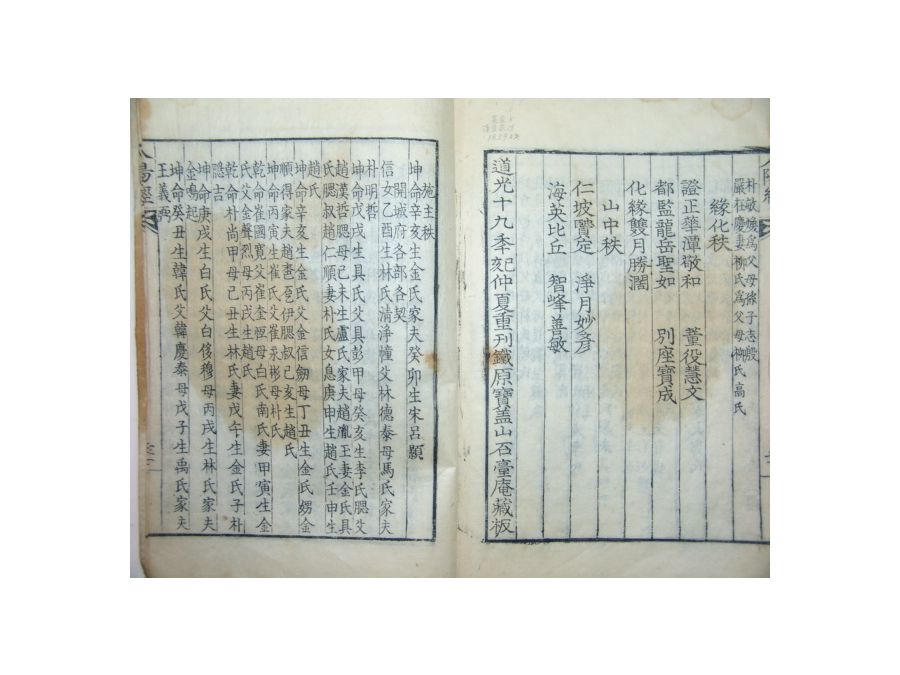 朴敏煥爲父母徐子志殷
嚴桂慶妻柳氏爲父母柳氏高氏
緣化秩
證正華潭敬和 董役慧文
都監龍岳聖如 別座寶成
化緣雙月勝濶
山中秩
仁坡寶定 淨月妙彥
海英比丘 智峰善敏
道光十九季
仲夏重刊鐵原寶盖山石臺庵藏板
施主秩
坤命辛亥生金氏家夫癸卯生宋呂顯
開城府各部各契
信女乙酉生林氏清淨
父林德泰母馬氏家夫
朴明哲
坤命戊戌生具氏父具彭甲母癸亥生李氏
趙漢哲
母已未生盧氏家夫趙胤王妻金氏具
氏
叔趙仁順妻朴氏女息庚申生趙氏壬申生
趙氏
坤命辛亥生金氏父金信
母丁丑生金氏甥金
順得家夫趙
伊
叔已亥生趙氏
坤命丙寅生崔氏父崔永彬母朴氏
乾命崔國寬父崔奎
母白氏南氏妻甲寅生金
氏父金聲烈母丙戌生趙氏
乾命朴尚甲母己丑生林氏妻戊午生金氏子朴
隱吉
坤命庚戌生白氏父白侈穆母丙戌生林氏家夫
金鳴起
坤命癸丑生韓氏父韓慶泰母戊子生禹氏家夫
王義